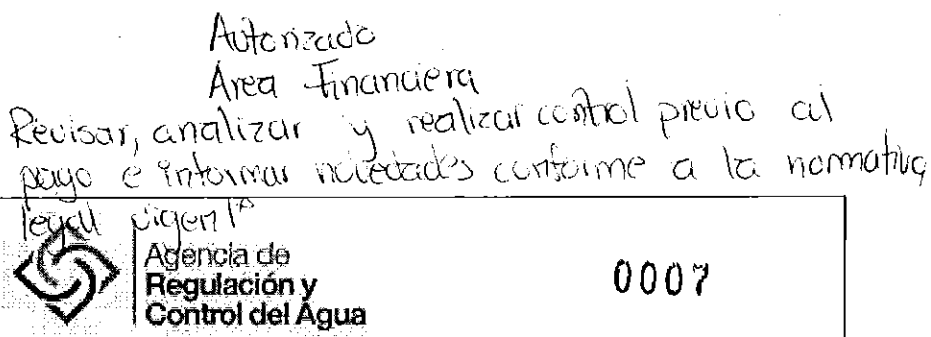 Autorizado
Área Financiera
Revisar, analizar y realizar control previo al
pago e informar novedades conforme a la normativa
legal vigente
Agencia de
Regulación y
Control del Agua
0007